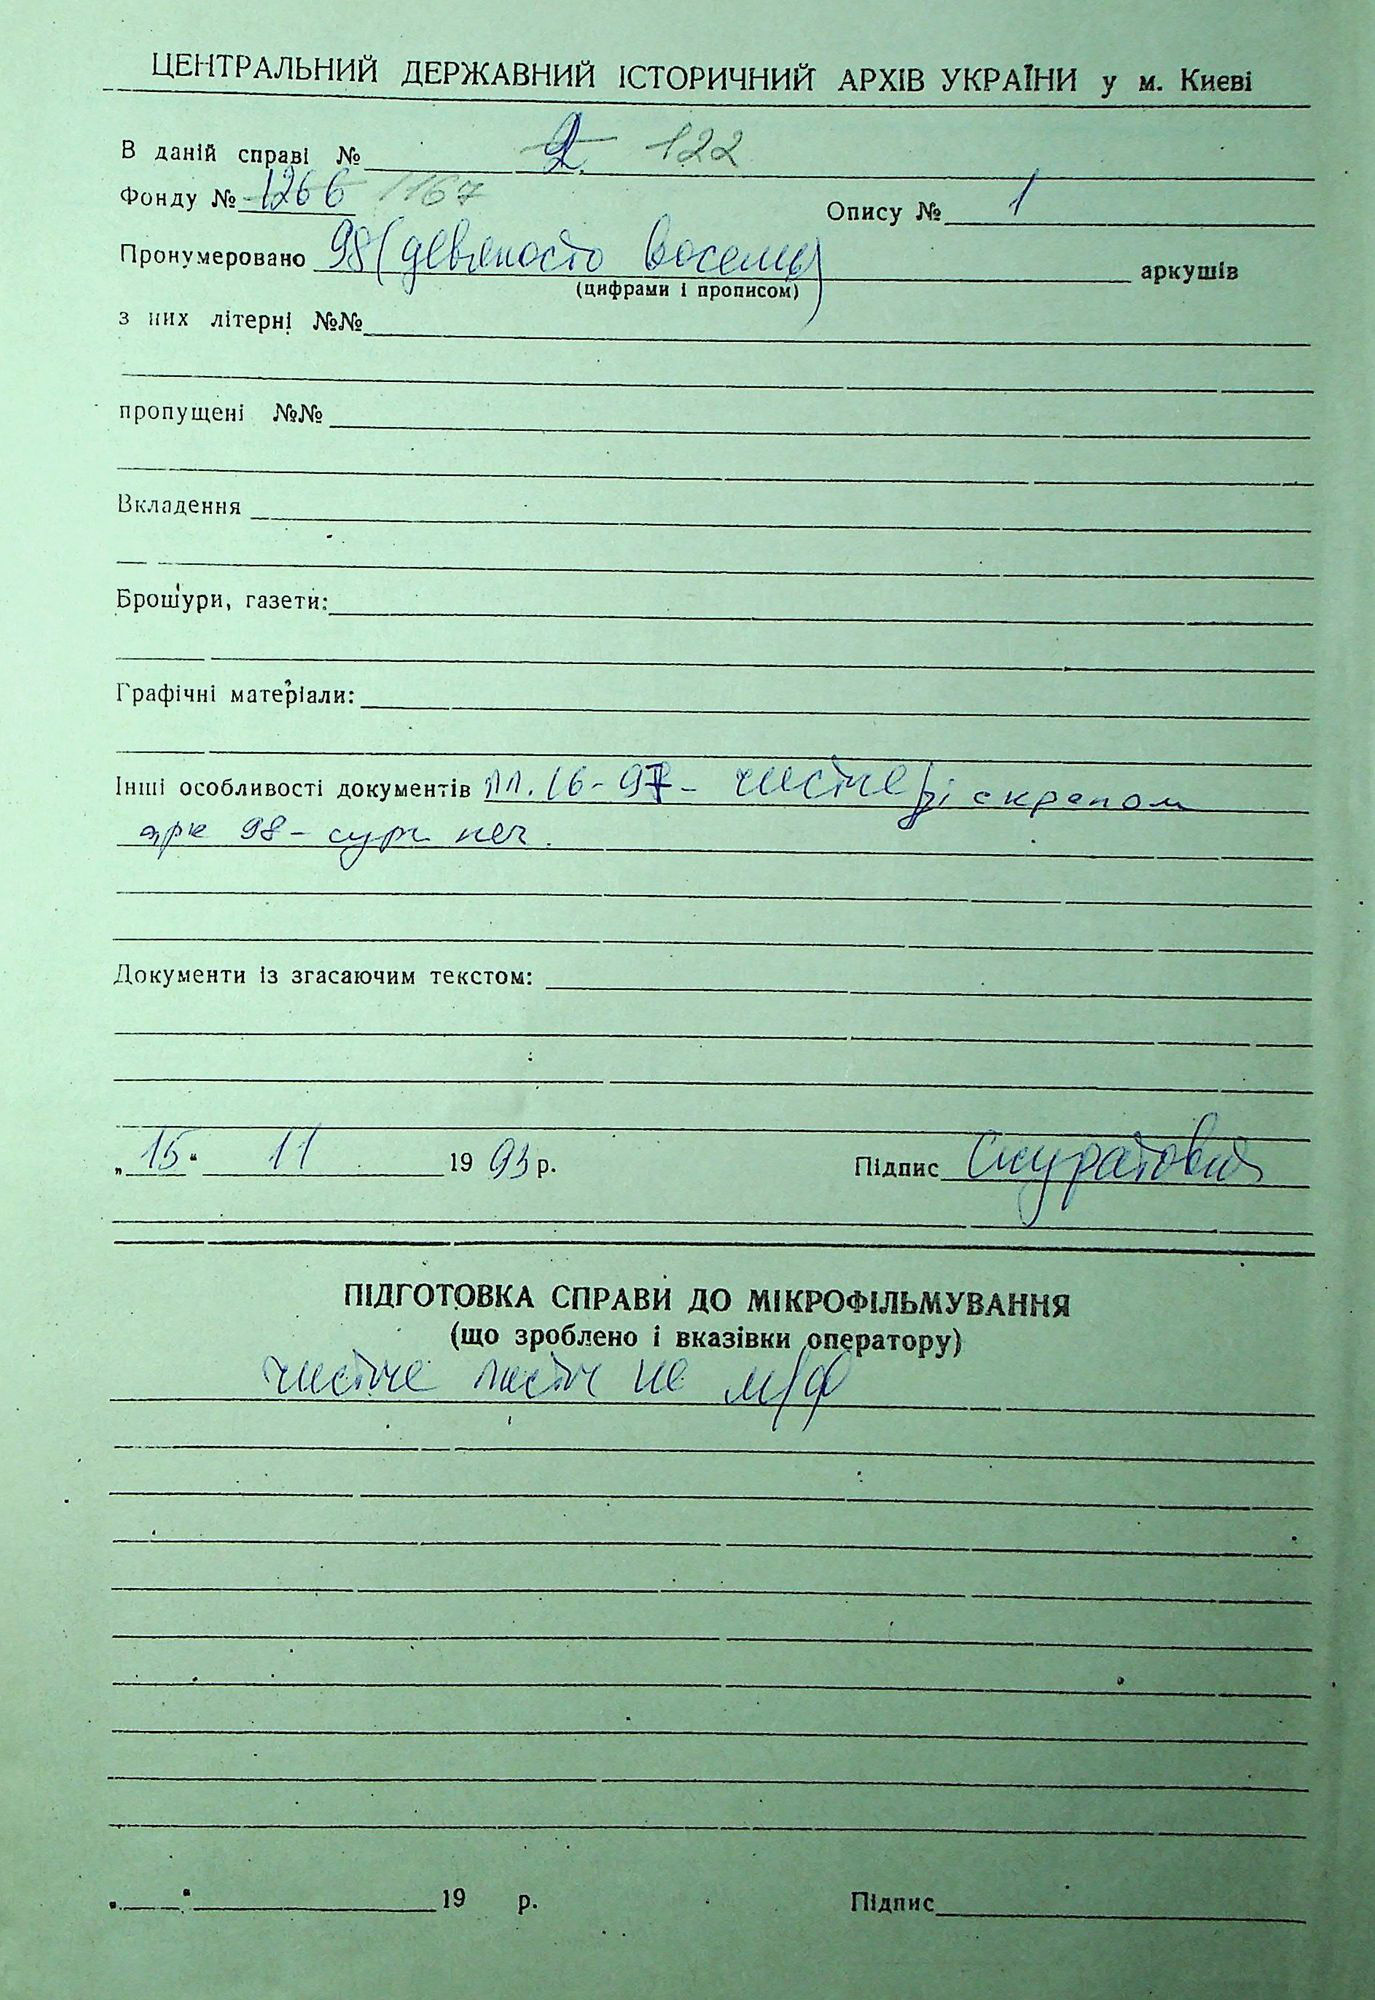 ЦЕНТРАЛЬНИЙ ДЕРЖАВНИЙ ІСТОРИЧНИЙ АРХІВ УКРАЇНИ у м. Києві
В даній справі № 2 122
Фонду № 1266 1167 Опису № 1
Пронумеровано 98 (девяносто восемь) аркушів
(цифрами і прописом)
з них літерні №№
пропущені №№
Вкладення
Брошури, газети:
Графічні матеріали:
Інші особливості документів лл. 16-97- чисте зі скрепом
арк 98- сург печ.
Документи із згасаючим текстом:
„15“ 11 1993 р. Підпис
ПІДГОТОВКА СПРАВИ ДО МІКРОФІЛЬМУВАННЯ
(що зроблено і вказівки оператору)
чистые листы не м/ф
„ “ 19 р. Підпис